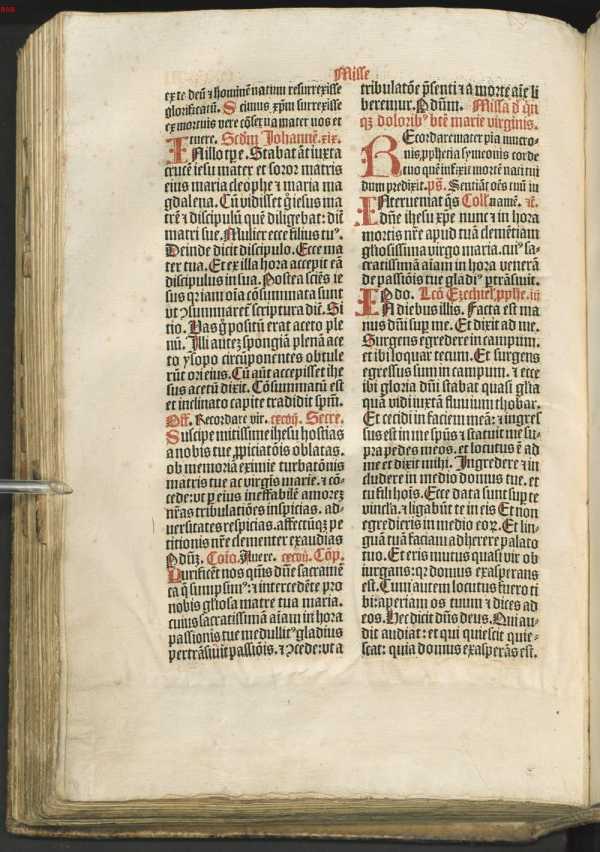 Misse
ex te deū ⁊ hominē natum resurrexisse
glorificatū. Scimus xp̄m surrexisse
ex mortuis vere cōser.va mater nos et
tuere. Scdm̄ Johannē. xix.
IN illo tp̄e. Stabāt āt iuxta
crucē iesu mater et soror matris
eius maria cleophe ⁊ maria ma
gdalena. Cū vidisset gͦ iesus ma
trē ⁊ discipulū quē diligebat: dixit
matri sue. Mulier ecce filius tuꝰ.
Deinde dicit discipulo. Ecce ma
ter tua. Et ex illa hora accepit eā
discipulus in sua. Postea sciēs ie
sus qr iam oīa cōsummata sunt
vt ꝯsummaret̄ scriptura dixit. Si
tio. Vas gͦ positū erat aceto ple
nū. Illi autez spongiā plenā ace
to ysopo circūponentes obtule
rūt ori eius. Cū aūt accepisset ihe
sus acetū dixit. Cōsummatū est
et inclinato capite tradidit spm̄.
Off. Recordare vir. cxcvij. Secre.
Suscipe mitissime ihesu hostias
a nobis tue ꝓpiciatōis oblatas.
ob memoriā eximie turbatōnis
matris tue ac virgīs marie. ⁊ cō-
cede: vt ꝑ eius ineffabilē amorez
nr̄as tribulatiōes inspicias. ad-
uersitates respicias. affectūqz pe
titionis nr̄e clementer exaudias
Per dn̄z. Coīo. Auere. cxcvij. Cōp.
Purificent nos q̄sum̄s dn̄e sacramē
ta q̄ sumpsimꝰ: ⁊ intercedēte pro
nobis gl̄iosa matre tua maria.
cuius sacratissimā aīam in hora
passionis tue medullitꝰ gladius
pertrāsiuit passiōis. ⁊ ꝯcede: vt a
tribulatōe p̄senti ⁊ a morte aīe li
beremur. Per dn̄m. Missa d̄ qn̄
qz doloribꝰ btē marie virginis.
REcordare mater pia mucro-
nis, ꝓphetia symeonis corde
tuo quē infixit mortē nati tui
dum predixit. ps̄. Sentiāt oēs tuū iu
INterueniat q̄s Collnamē. ⁊c̄.
dn̄e ihesu xp̄e nunc ⁊ in hora
mortis nr̄e apud tuā clemētiam
gl̄iosissima virgo maria. cuiꝰ sa-
cratissimā aīam in hora venerā
de passiōis tue gladiꝰ ꝑtrāsiuit.
Per eūdo. Lcō Ezechiel. ꝓphe. iij
IN diebus illis. Facta est ma
nus dn̄i suꝑ me. Et dixit ad me.
Surgens egredere in campum.
et ibi loquar tecum. Et surgens
egressus sum in campum. ⁊ ecce
ibi gloria dn̄i stabat quasi gl̄ia
quā vidi iuxta fluuium chobar.
Et cecidi in faciem meā: ⁊ ingres
sus est in me spūs ⁊ statuit me su-
pra pedes meos. et locutus ē ad
me et dixit mihi. Ingredere ⁊ in
cludere in medio domus tue. et
tu fili hoīs. Ecce data sunt suꝑ te
vincl̄a. ⁊ ligabūt te in eis Et non
egredieris in medio eoꝝ. Et lin-
guā tuā faciam adherere palato
tuo. Et eris mutus quasi vir ob
iurgans: qr domus exasperans
est. Cum autem locutus fuero ti
bi: aperiam os tuum ⁊ dices ad
eos. Hec dicit dn̄s deus. Qui au-
dit audiat: et qui quiescit quie-
scat: quia domus exasperās est.